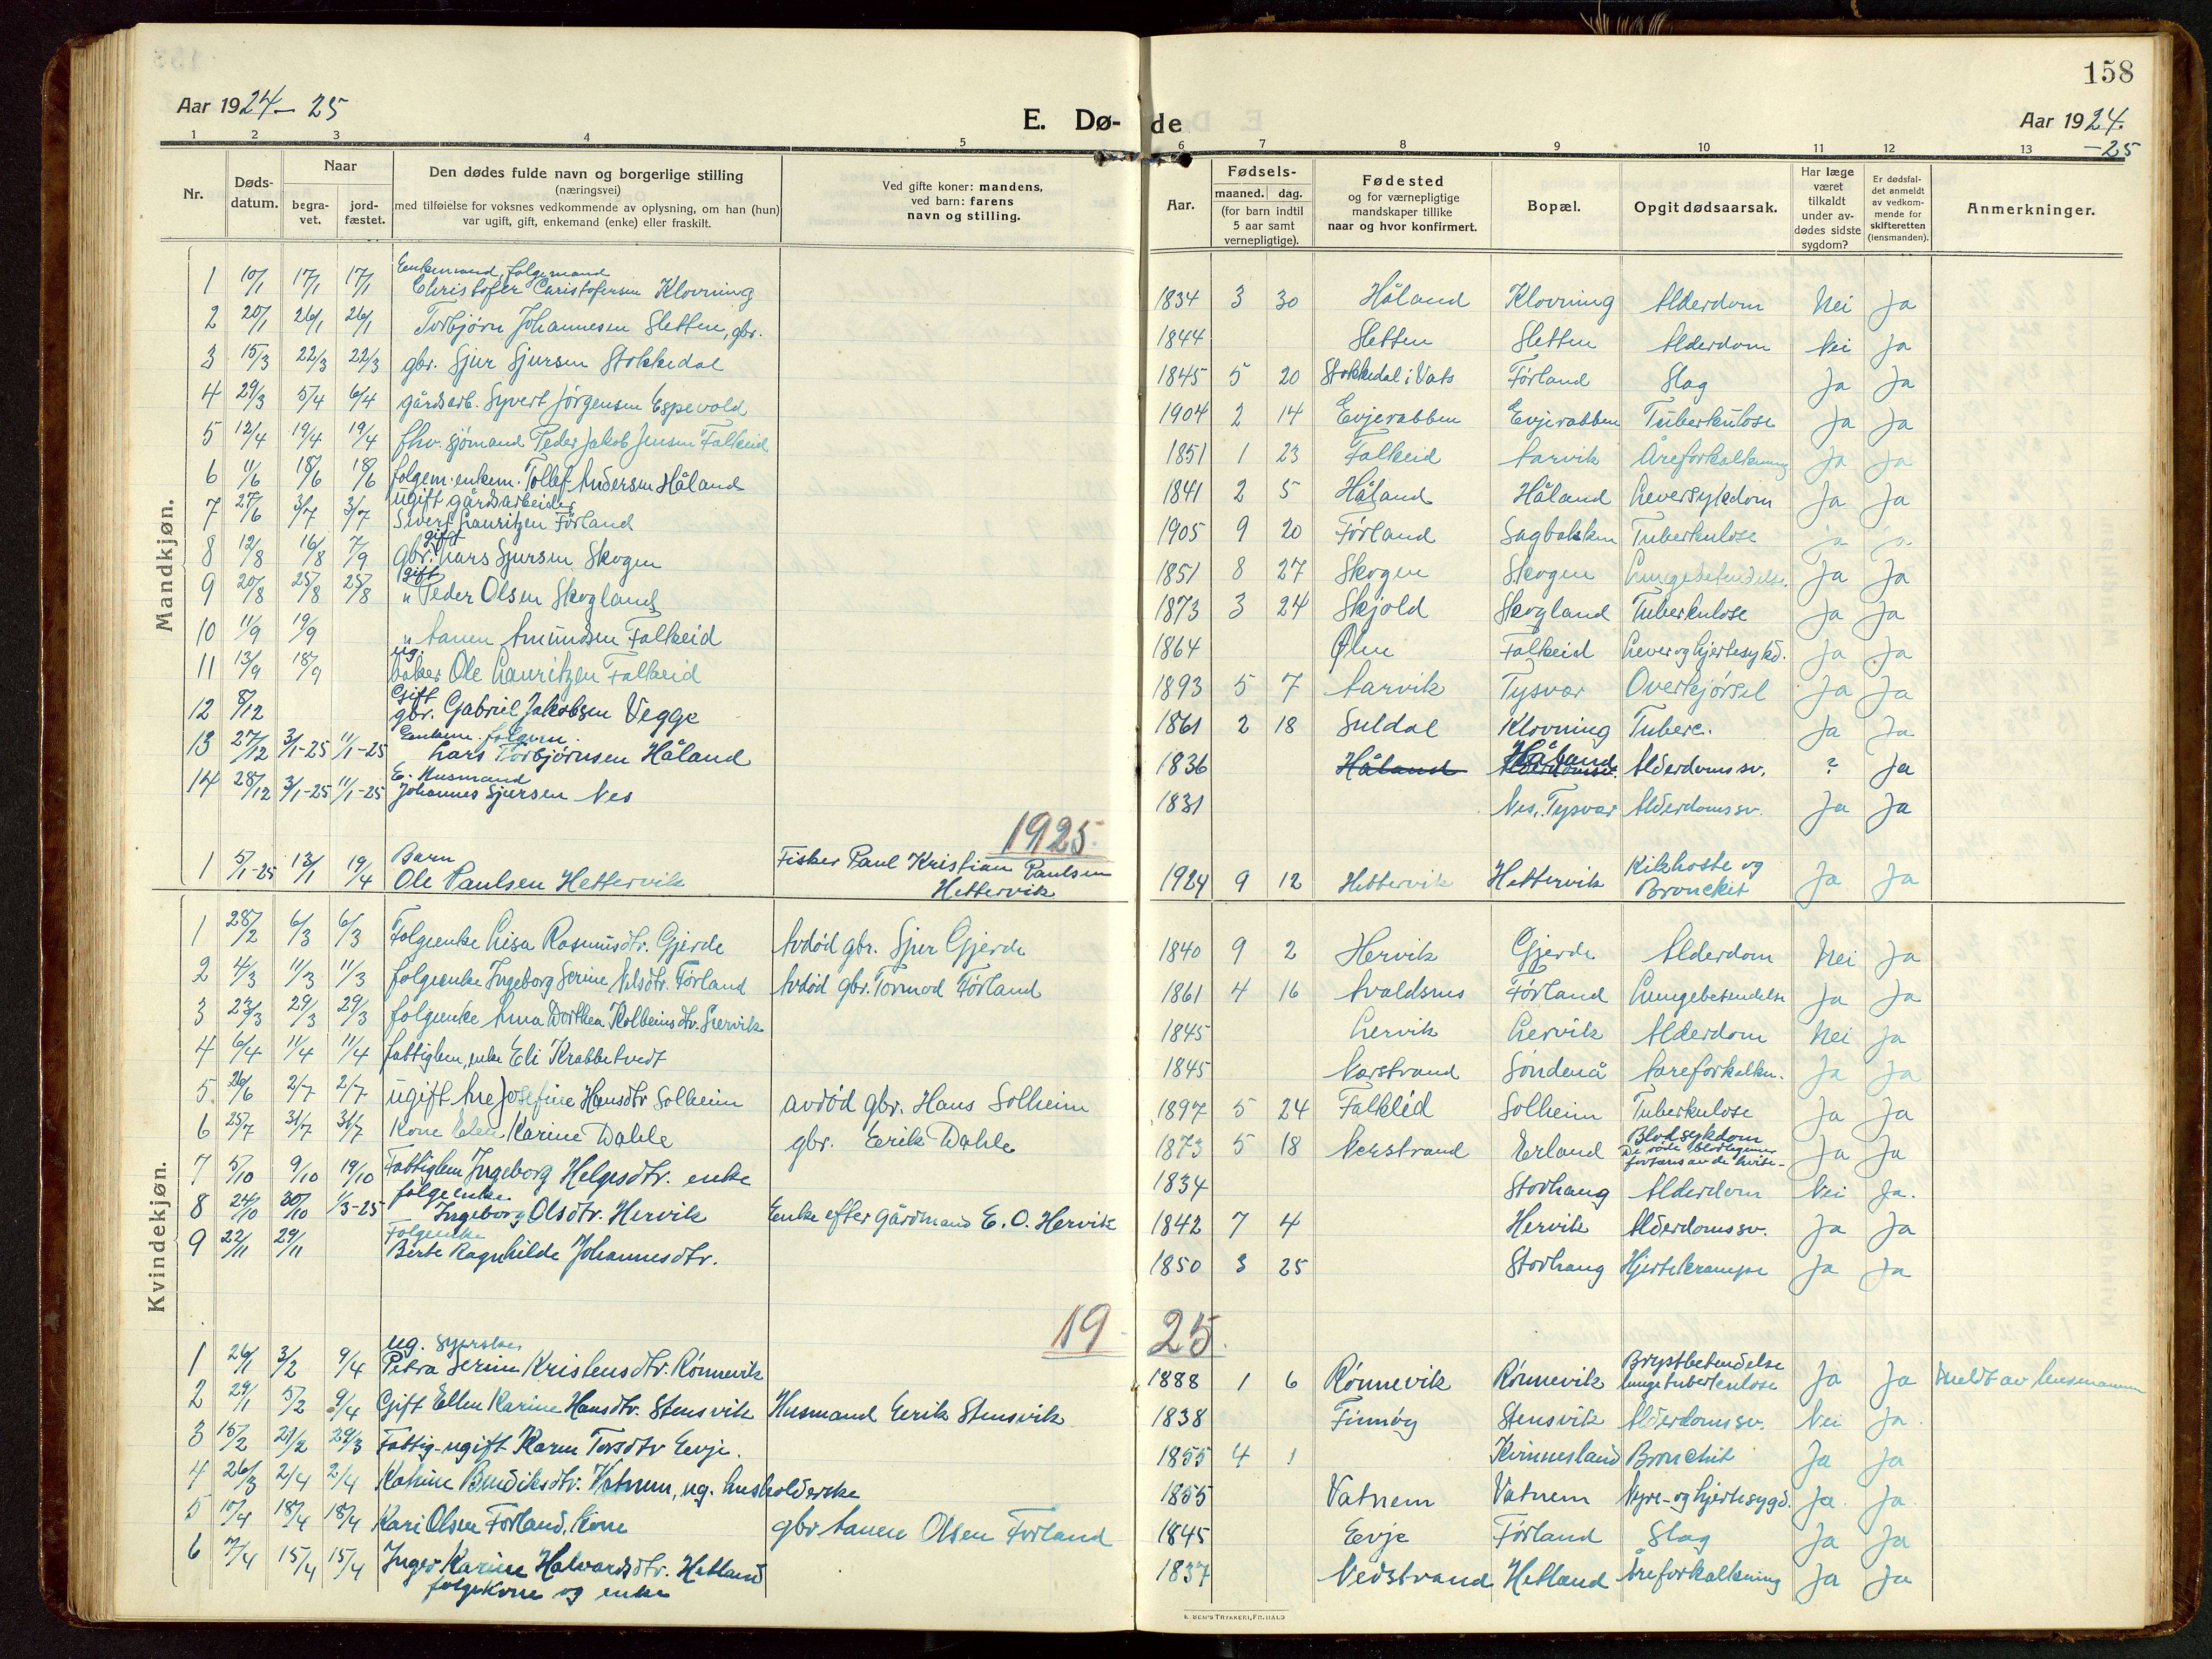 158
Aar 1924-25
E. Dø-de
Aar 1924.
-25
1 2 3 4 5 6 7 8 9 10 11 12 13
Nr.
Døds-datum.
Naar
begra-vet.
jord-fæstet.
Den dødes fulde navn og borgerlige stilling
(næringsvei)
med tilføielse for voksnes vedkommende av oplysning, om han (hun)
var ugift, gift, enkemand (enke) eller fraskilt.
Ved gifte koner: mandens,
ved barn: farens
navn og stilling.
Aar.
Fødsels-
maaned. dag.
(for barn indtil
5 aar samt
vernepligtige).
Fødested
og for værnepligtige
mandskaper tillike
naar og hvor konfirmert.
Bopæl.
Opgit dødsaarsak.
Har læge
været
tilkaldt
under av-
dødes sidste
sygdom?
Er dødsfal-
det anmeldt
av vedkom-
mende for
skifteretten
(lensmanden).
Anmerkninger.
Mandkjøn.
1 10/1 17/1 17/1 Enkemand, folgemand Christofer Christofersen Klovning 1834 3 30 Håland Klovning Alderdom Nei Ja
2 20/1 26/1 26/1 Torbjørn Johannesen Sletten, gbr. 1844 Sletten Sletten Alderdom Nei Ja
3 15/3 22/3 22/3 gbr. Sjur Sjursen Stokkedal 1845 5 20 Stokkedal i Vats Førland Slag Ja Ja
4 29/3 5/4 6/4 gårdsarb. Syvert Jørgensen Espevold 1904 2 14 Evjerabben Evjerabben Tuberkulose Ja Ja
5 12/4 19/4 19/4 fhv. sjømand Peder Jakob Jensen Falkeid 1851 1 23 Falkeid Aarvik Åreforkalkning Ja Ja
6 11/6 18/6 18/6 folgem. enkem. Tollef Andersen Håland 1841 2 5 Håland Håland Leversykdom Ja Ja
7 27/6 3/7 3/7 ugift gårdsarbeider Sivert Lauritzen Førland 1905 9 20 Førland Sagbakken Tuberkulose ja ja
8 12/8 16/8 7/9 gbr. gift Lars Sjursen Skogen 1851 8 27 Skogen Skogen Lungebetendelse Ja Ja
9 20/8 25/8 25/8 gift " Peder Olsen Skogland 1873 3 24 Skjold Skogland Tuberkulose Ja Ja
10 11/9 19/9 " Aanen Amundsen Falkeid 1864 Ølen Falkeid Lever og hjertesykd. Ja Ja
11 13/9 18/9 ug. baker Ole Lauritzen Falkeid 1893 5 7 Aarvik Tysvær Overkjørsel Ja Ja
12 8/12 Gift gbr. Gabriel Jakobsen Vegge 1861 2 18 Suldal Klovning Tuberc. Ja Ja
13 27/12 3/1-25 11/1-25 Enkem. folgem. Lars Torbjørnsen Håland 1836 Håland Håland Alderdomssv. ? Ja
14 28/12 3/1-25 11/1-25 E. Husmand Johannes Sjursen Nes 1831 Nes, Tysvær Alderdomssv. Ja Ja
1925.
1 5/1-25 13/1 19/4 Barn Ole Paulsen Hettervik Fisker Paul Kristian Paulsen Hettervik 1924 9 12 Hettervik Hettervik Kikhoste og Bronckit Ja Ja
Kvindekjøn.
1 28/2 6/3 6/3 Folgeenke Lisa Rasmusdtr. Gjerde Avdød gbr. Sjur Gjerde 1840 9 2 Hervik Gjerde Alderdom Nei Ja
2 4/3 11/3 11/3 folgeenke Ingeborg Serine Nilsdtr. Førland Avdød gbr. Tormod Førland 1861 4 16 Avaldsnes Førland Lungebetendelse Ja Ja
3 23/3 29/3 29/3 folgeenke Ana Dorthea Kolbeinsdtr. Lervik 1845 Lervik Lervik Alderdom Nei Ja
4 6/4 11/4 11/4 fattiglem, enke Eli Krabbetvedt 1845 Nærstrand Søndenå Aareforkalkn. Ja Ja
5 26/6 2/7 2/7 ugift Ane Josefine Hansdtr Solheim avdød gbr. Hans Solheim 1897 5 24 Falkeid Solheim Tuberkulose Ja Ja
6 25/7 31/7 31/7 Kone Elen Karine Dahle gbr. Eerik Dahle 1873 5 18 Nerstrand Erland Blodsykdom De røde blodlegemer fortæres av de hvite- Ja Ja
7 5/10 9/10 19/10 Fattiglem Ingeborg Helgesdtr. enke 1834 Storhaug Alderdom Nei Ja.
8 24/10 30/10 1/3-25 folgeenke Ingeborg Olsdtr. Hervik Enke efter gårdmand E. O. Hervik 1842 7 4 Hervik Alderdomssv. Ja Ja
9 22/11 29/11 Folgeenke Berte Ragnhilde Johannesdtr. 1850 3 25 Storhaug Hjertekrampe Ja Ja
1925.
1 26/1 3/2 9/4 ug. syerske Petra Serine Kristensdtr. Rønnevik 1888 1 6 Rønnevik Rønnevik Brystbetendelse lungetuberkulose Ja Ja Meldt av lensmannen
2 29/1 5/2 9/4 Gift Ellen Karine Hansdtr. Stensvik Husmand Eerik Stensvik 1838 Finnøy Stensvik Alderdomssv. Nei Ja.
3 15/2 21/2 29/3 Fattig-ugift Karen Torsdtr Eevje. 1855 4 1 Kvinnesland Bronchit Ja Ja
4 26/3 2/4 2/4 Katrine Bendiksdtr. Vatnem, ug. husholderske 1855 Vatnem Vatnem Nyre- og hjertesygd. Ja. Ja.
5 10/4 18/4 18/4 Kari Olsen Førland, Kone gbr Aanen Olsen Førland 1845 Eevje Førland Slag Ja Ja
6 7/4 15/4 15/4 Inger Karine Halvardsdtr. Hetland folgekone og enke 1837 Nedstrand Hetland Åreforkalkning Ja Ja